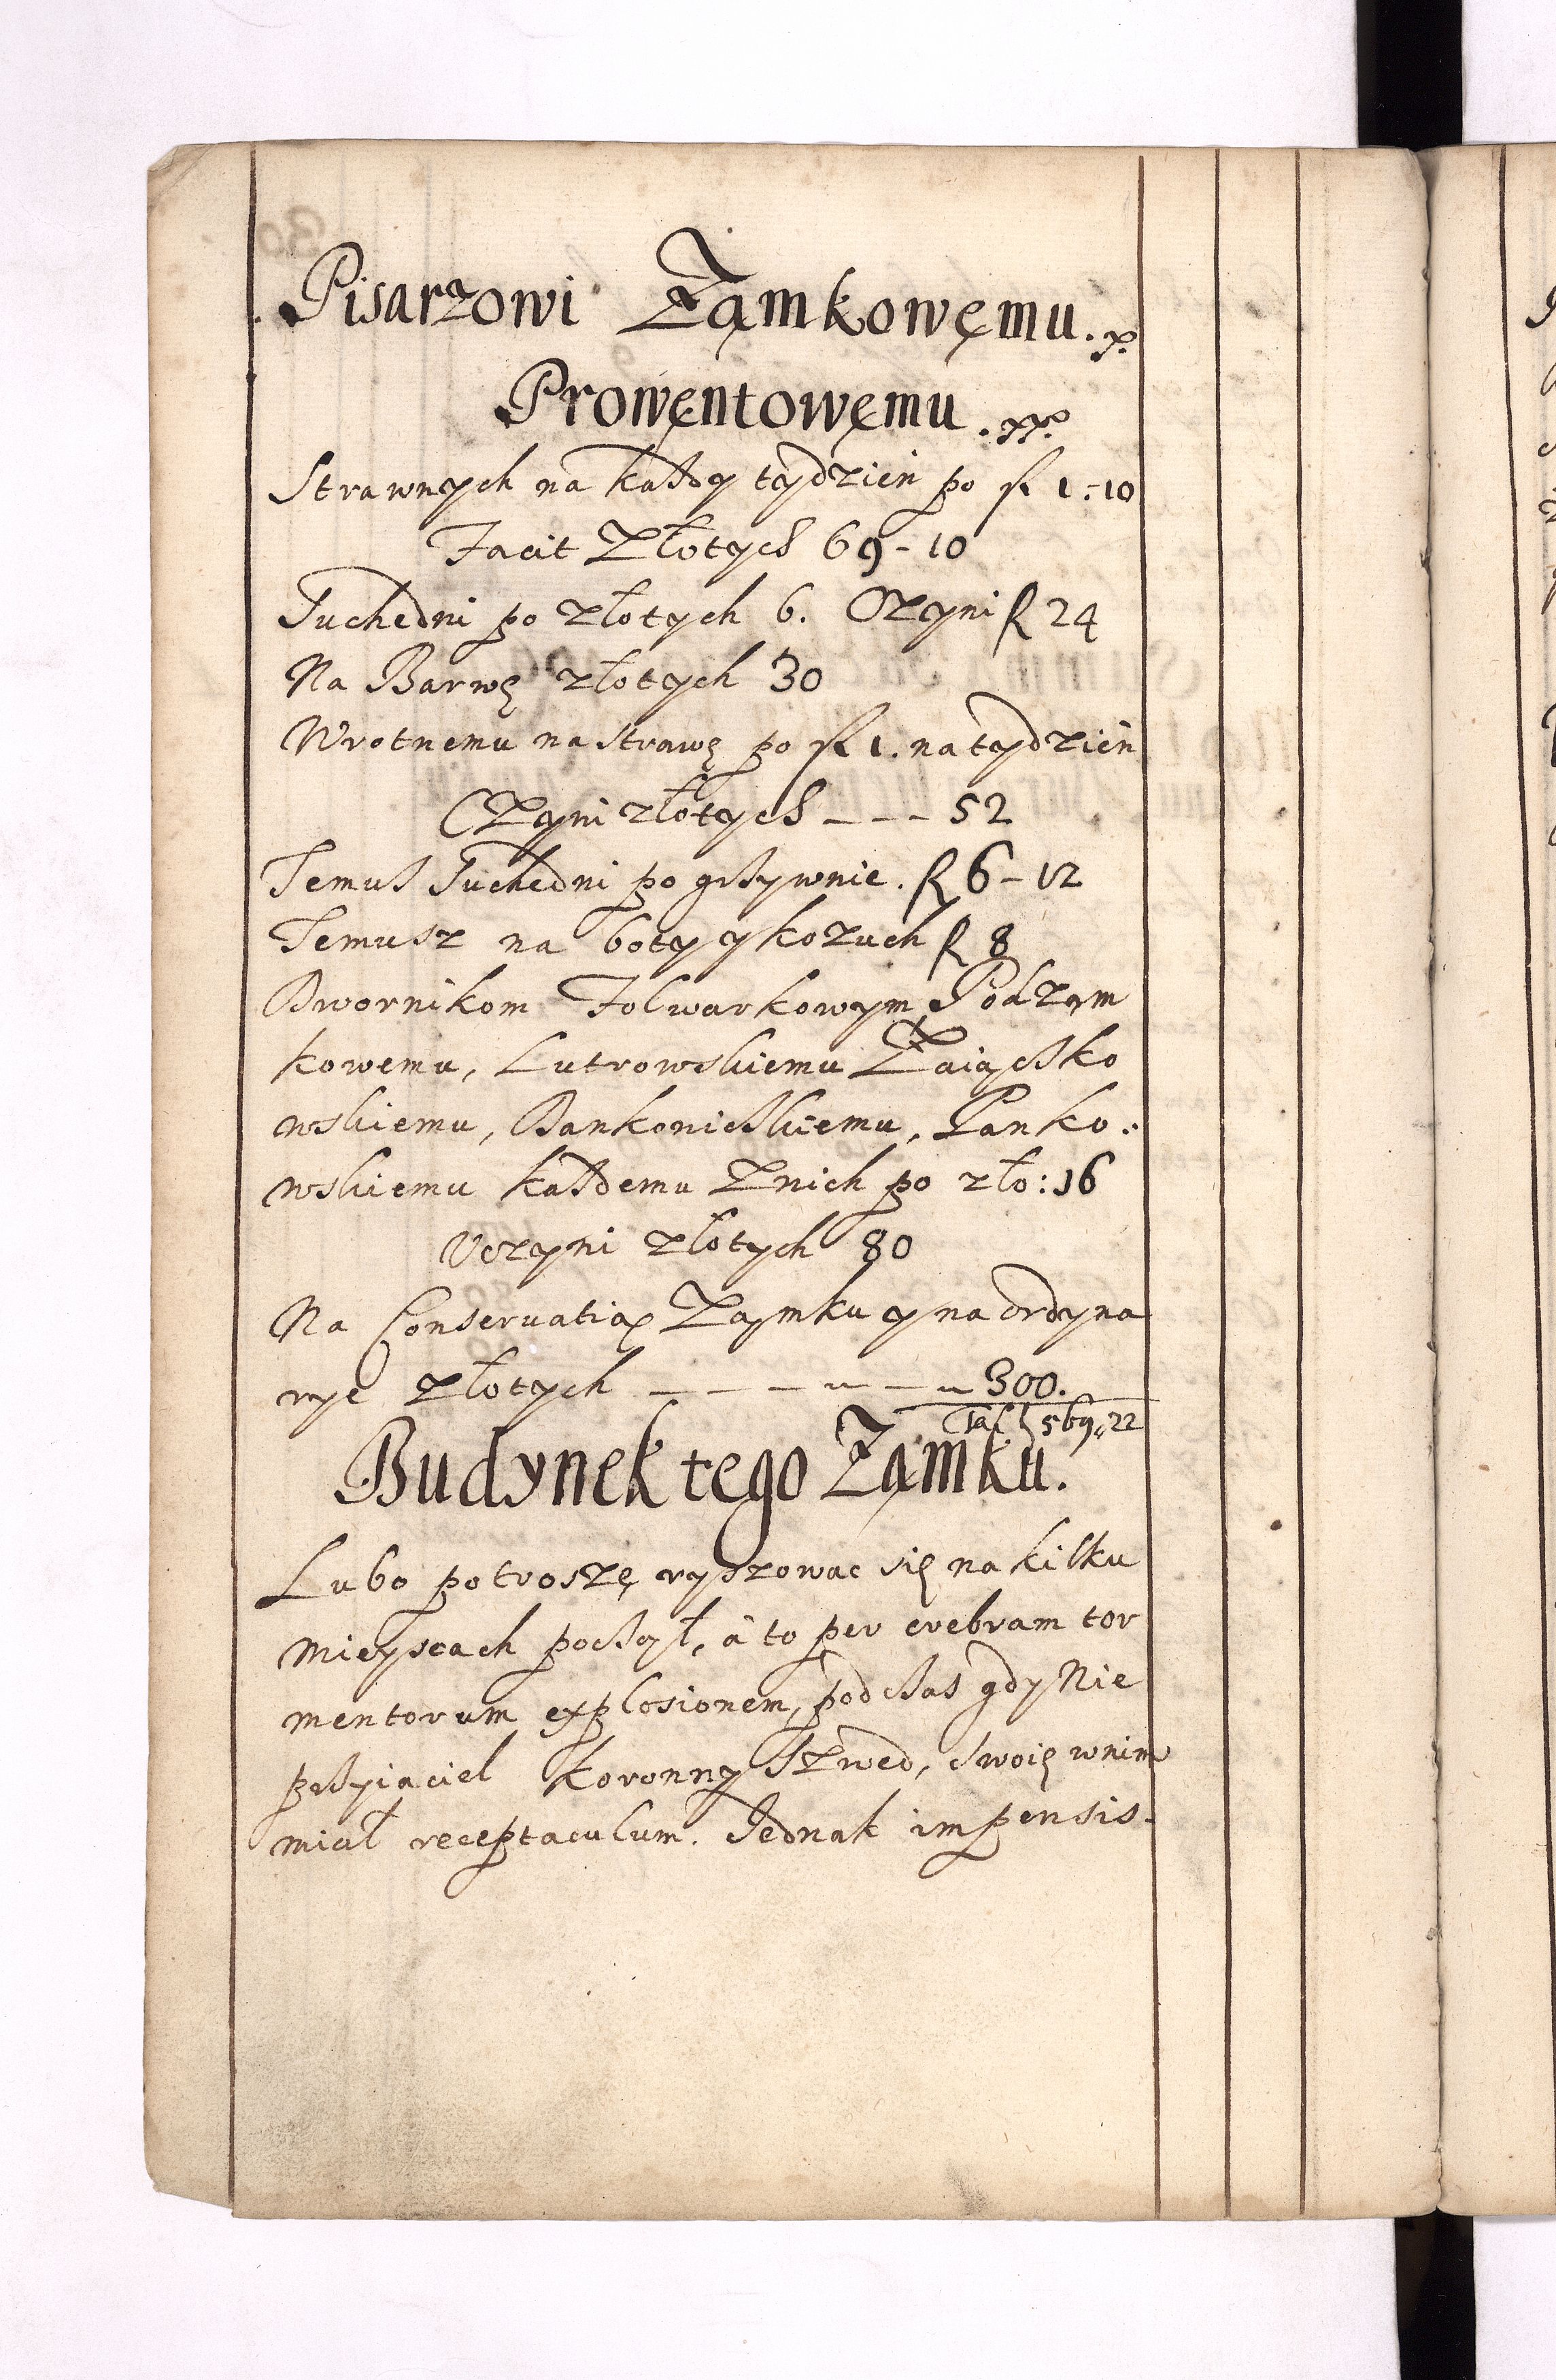 Pisarzowi Ząmkowęmu.
Prowęntowęmu.
Strawnych na każdy tydzień po fl 1:10
Facit Złotych 69-10
Suchedni po złotych 6. Czyni fl 24
Na Barwę złotych 30
Wrotnemu na strawę po fl 1. na tydzień
Czyni złotych - - - 52
Temuż Suchedni po grzywnie. fl 6-12
Temusz na boty y kozuch fl 8
Dwornikom Folwarkowym, Podząm
kowemu, Lutrowskiemu Zaiączko
wskiemu, Dankowickiemu, Panko:
wskiemu każdemu Znich po zło: 16
Uczyni złotych 80
Na Conseruatią Zamku y na ordyna
rye złotych - - - - - - 300.
569,22
Budynek tego Ząmku.
Lubo po troszę ryszowac się na kilku
mieyscach począł, à to per crebram tor
mentorum explosionem, podczas gdy Nie
przyiaciel Koronny Szwed, swoię wnim
miał receptaculum. Jednak impensis.